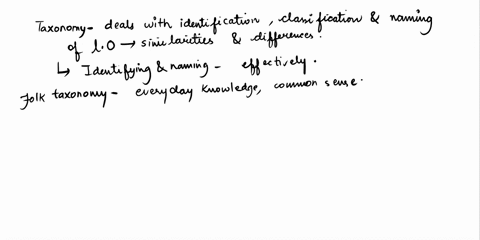 Taxonomy- deals with identification, classification & naming
of l.O → similarities & differences.
↳ Identifying & naming - effectively.
Folk taxonomy - everyday knowledge, common sense.